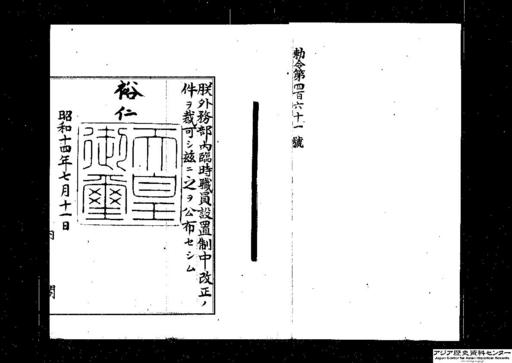 勅令第四百六十一號
朕外務部內臨時職員設置制中改正ノ
件ヲ裁可シ茲ニ之ヲ公布セシム
裕仁
天皇
御璽
昭和十四年七月十一日
内閣
アジア歴史資料センター
Japan Center for Asian Historical Records